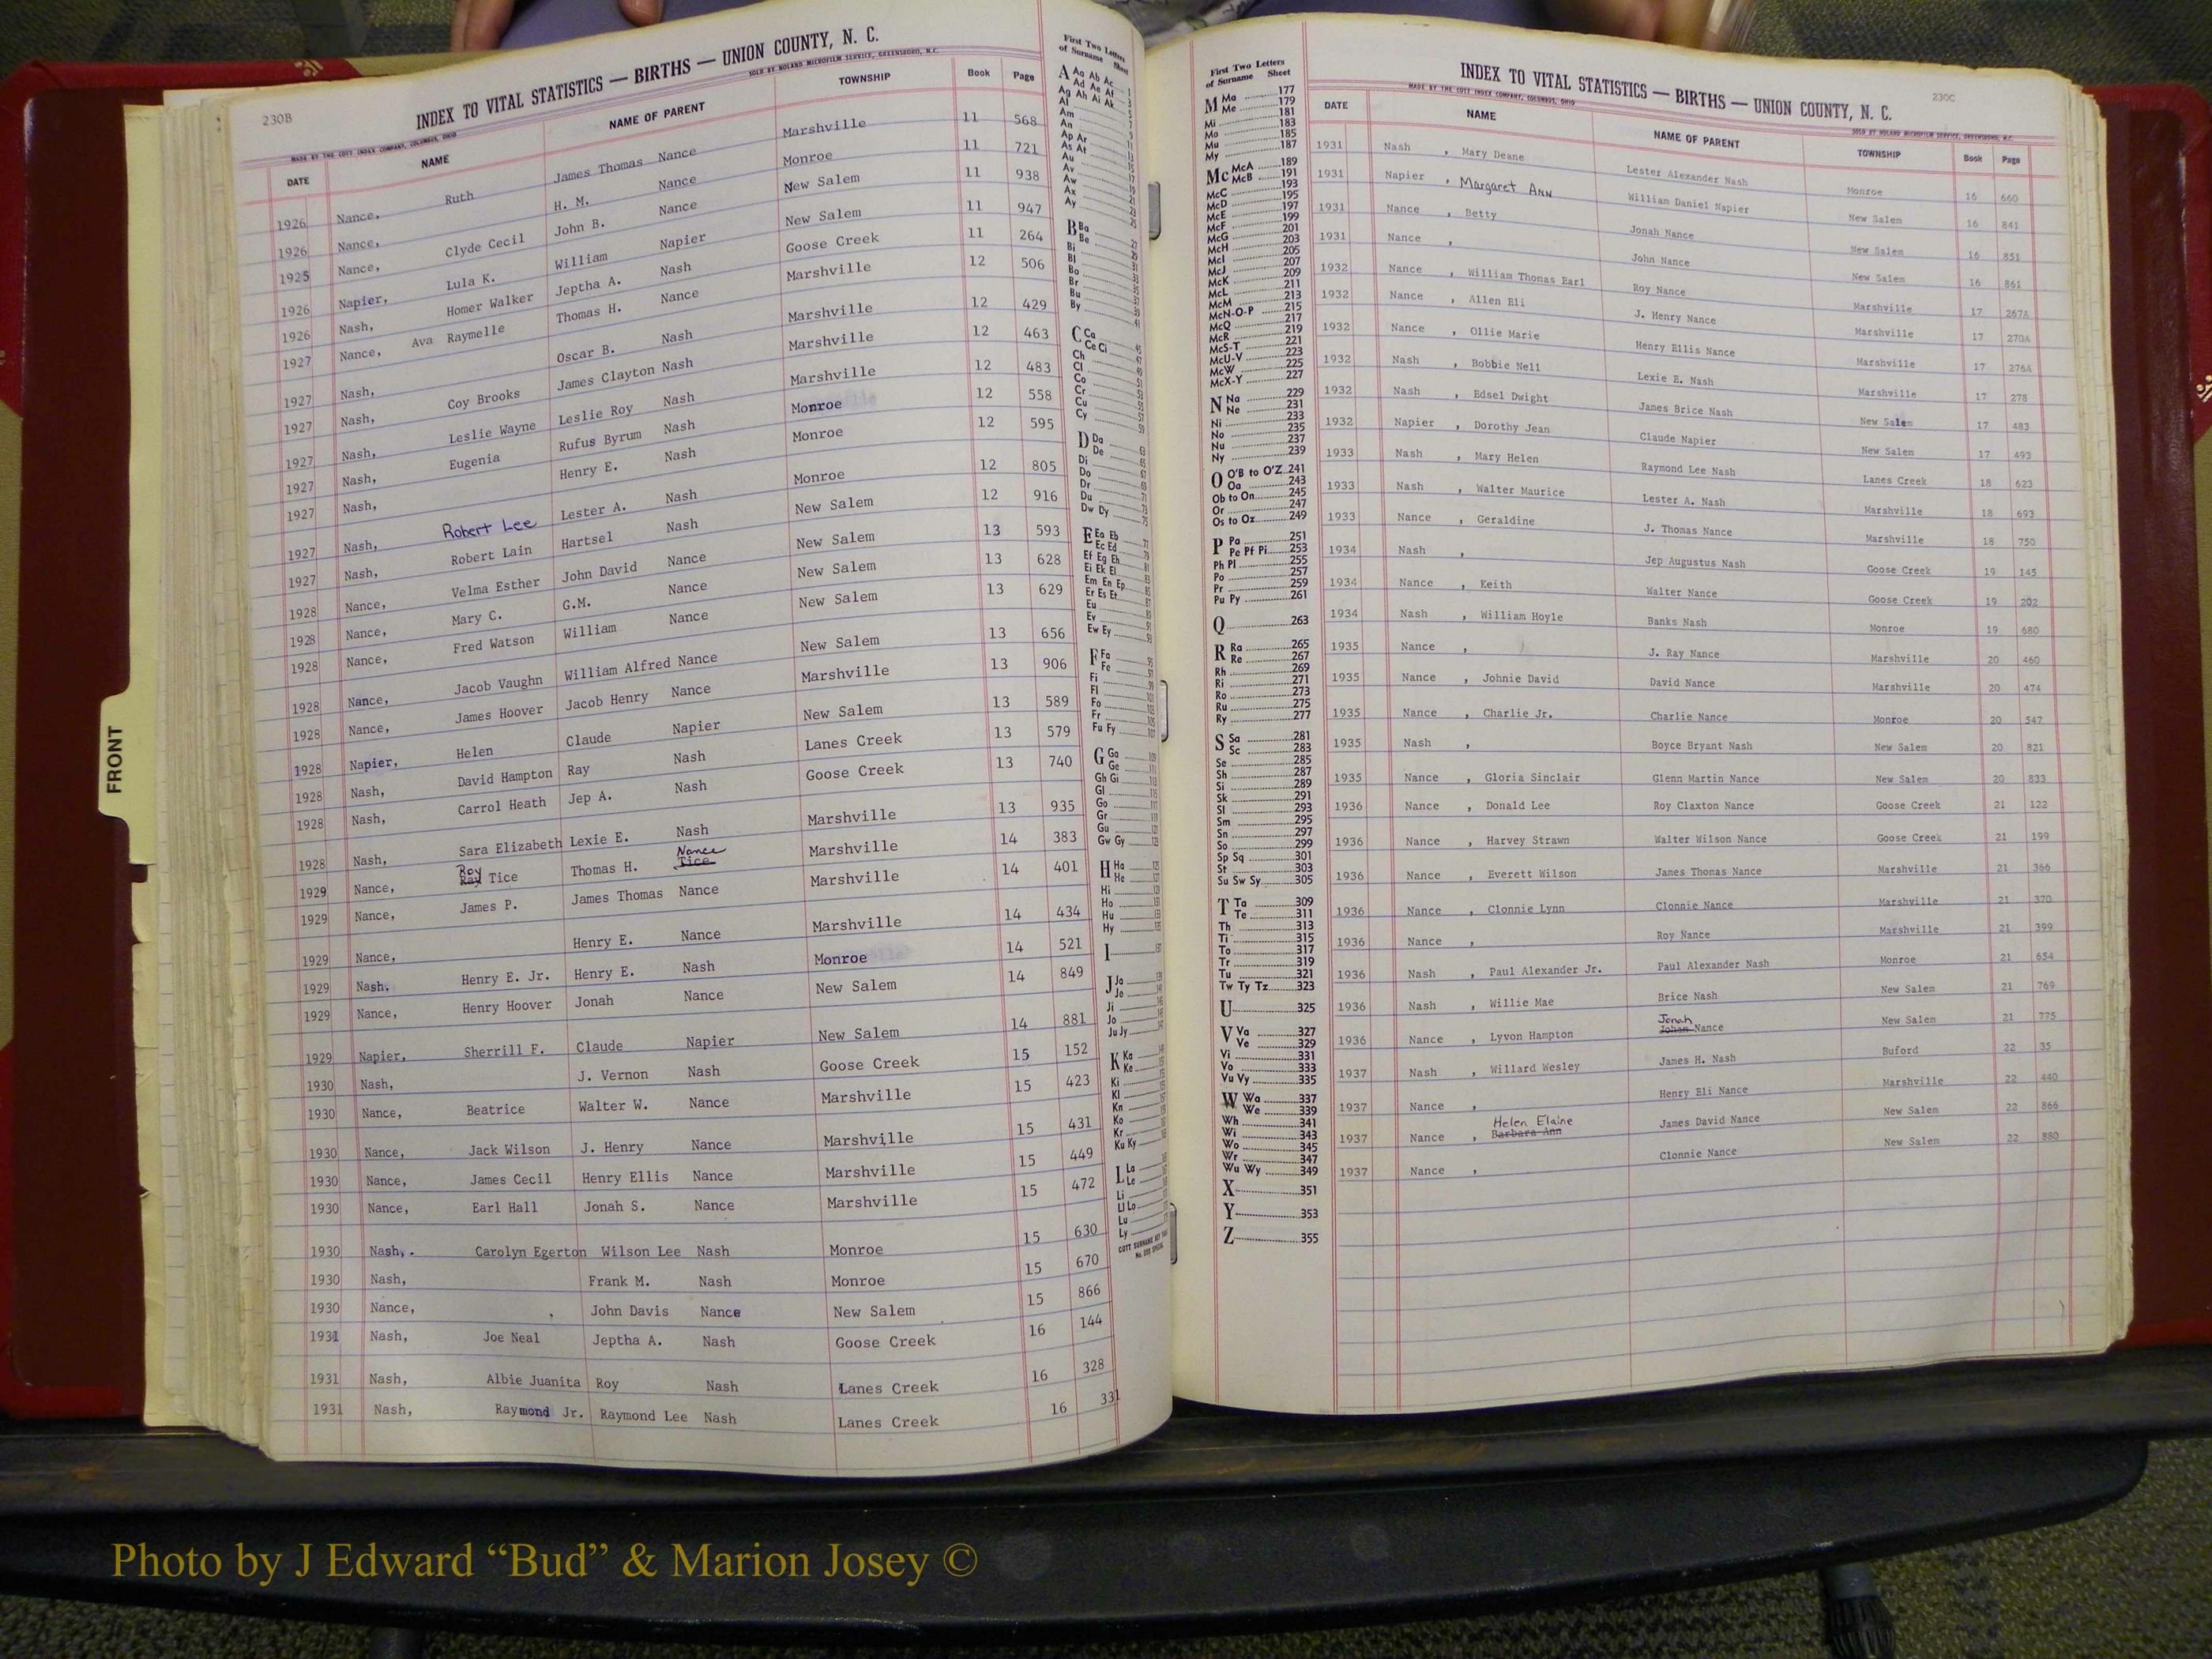 230B
INDEX TO VITAL STATISTICS — BIRTHS — UNION COUNTY, N. C.
MADE BY THE COTT INDEX COMPANY, COLUMBUS, OHIO SOLD BY NOLAND MICROFILM SERVICE, GREENSBORO, N.C.
DATE NAME NAME OF PARENT TOWNSHIP Book Page
1926 Nance, Ruth James Thomas Nance Marshville 11 568
1926 Nance, H. M. Nance Monroe 11 721
1925 Nance, Clyde Cecil John B. Nance New Salem 11 938
1926 Napier, Lula K. William Napier New Salem 11 947
1926 Nash, Homer Walker Jeptha A. Nash Goose Creek 11 264
1927 Nance, Ava Raymelle Thomas H. Nance Marshville 12 506
1927 Nash, Oscar B. Nash Marshville 12 429
1927 Nash, Coy Brooks James Clayton Nash Marshville 12 463
1927 Nash, Leslie Wayne Leslie Roy Nash Marshville 12 483
1927 Nash, Eugenia Rufus Byrum Nash Monroe 12 558
1927 Nash, Henry E. Nash Monroe 12 595
1927 Nash, Robert Lee Lester A. Nash Monroe 12 805
1927 Nash, Robert Lain Hartsel Nash New Salem 12 916
1928 Nance, Velma Esther John David Nance New Salem 13 593
1928 Nance, Mary C. G.M. Nance New Salem 13 628
1928 Nance, Fred Watson William Nance New Salem 13 629
1928 Nance, Jacob Vaughn William Alfred Nance New Salem 13 656
1928 Nance, James Hoover Jacob Henry Nance Marshville 13 906
1928 Napier, Helen Claude Napier New Salem 13 589
1928 Nash, David Hampton Ray Nash Lanes Creek 13 579
1928 Nash, Carrol Heath Jep A. Nash Goose Creek 13 740
1928 Nash, Sara Elizabeth Lexie E. Nash Marshville 13 935
1929 Nance, Roy Ray Tice Thomas H. Nance Tice Marshville 14 383
1929 Nance, James P. James Thomas Nance Marshville 14 401
1929 Nance, Henry E. Nance Marshville 14 434
1929 Nash. Henry E. Jr. Henry E. Nash Monroe 14 521
1929 Nance, Henry Hoover Jonah Nance New Salem 14 849
1929 Napier, Sherrill F. Claude Napier New Salem 14 881
1930 Nash, J. Vernon Nash Goose Creek 15 152
1930 Nance, Beatrice Walter W. Nance Marshville 15 423
1930 Nance, Jack Wilson J. Henry Nance Marshville 15 431
1930 Nance, James Cecil Henry Ellis Nance Marshville 15 449
1930 Nance, Earl Hall Jonah S. Nance Marshville 15 472
1930 Nash, Carolyn Egerton Wilson Lee Nash Monroe 15 630
1930 Nash, Frank M. Nash Monroe 15 670
1930 Nance, John Davis Nance New Salem 15 866
1931 Nash, Joe Neal Jeptha A. Nash Goose Creek 16 144
1931 Nash, Albie Juanita Roy Nash Lanes Creek 16 328
1931 Nash, Raymond Jr. Raymond Lee Nash Lanes Creek 16 331
FRONT
First Two Letters
of Surname Sheet
A Aa Ab Ac
Ad Ae Af
Ag Ah Ai Ak
Al
Am
An
Ap Ar
As At
Au
Av
Aw
Ax
Ay
B Ba
Be
Bi
Bl
Bo
Br
Bu
By
C Ca
Ce Ci
Ch
Cl
Co
Cr
Cu
Cy
D Da
De
Di
Do
Dr
Du
Dw Dy
E Ea Eb
Ec Ed
Ef Eg Eh
Ei Ek El
Em En Ep
Er Es Et
Eu
Ev
Ew Ey
F Fa
Fe
Fi
Fl
Fo
Fr
Fu Fy
G Ga
Ge
Gh Gi
Gl
Go
Gr
Gu
Gw Gy
H Ha
He
Hi
Ho
Hu
Hy
I
J Ja
Je
Ji
Jo
Ju Jy
K Ka
Ke
Ki
Kl
Kn
Ko
Kr
Ku Ky
L La
Le
Li
Ll Lo
Lu
Ly
First Two Letters
of Surname Sheet
M Ma 177
Me 179
Mi 181
Mo 183
Mu 185
My 187
Mc McA 189
McB 191
McC 193
McD 195
McE 197
McF 199
McG 201
McH 203
McI 205
McJ 207
McK 209
McL 211
McM 213
McN-O-P 215
McQ 217
McR 219
McS-T 221
McU-V 223
McW 225
McX-Y 227
N Na 229
Ne 231
Ni 233
No 235
Nu 237
Ny 239
O O'B to O'Z 241
Oa 243
Ob to On 245
Or 247
Os to Oz 249
P Pa 251
Pe Pf Pi 253
Ph Pl 255
Po 257
Pr 259
Pu Py 261
Q 263
R Ra 265
Re 267
Rh 269
Ri 271
Ro 273
Ru 275
Ry 277
S Sa 281
Sc 283
Se 285
Sh 287
Si 289
Sk 291
Sl 293
Sm 295
Sn 297
So 299
Sp Sq 301
St 303
Su Sw Sy 305
T Ta 309
Te 311
Th 313
Ti 315
To 317
Tr 319
Tu 321
Tw Ty Tz 323
U 325
V Va 327
Ve 329
Vi 331
Vo 333
Vu Vy 335
W Wa 337
We 339
Wh 341
Wi 343
Wo 345
Wr 347
Wu Wy 349
X 351
Y 353
Z 355
230C
INDEX TO VITAL STATISTICS — BIRTHS — UNION COUNTY, N. C.
MADE BY THE COTT INDEX COMPANY, COLUMBUS, OHIO SOLD BY NOLAND MICROFILM SERVICE, GREENSBORO, N.C.
DATE NAME NAME OF PARENT TOWNSHIP Book Page
1931 Nash , Mary Deane Lester Alexander Nash Monroe 16 660
1931 Napier , Margaret Ann William Daniel Napier New Salem 16 841
1931 Nance , Betty Jonah Nance New Salem 16 851
1931 Nance , John Nance New Salem 16 861
1932 Nance , William Thomas Earl Roy Nance Marshville 17 267A
1932 Nance , Allen Eli J. Henry Nance Marshville 17 270A
1932 Nance , Ollie Marie Henry Ellis Nance Marshville 17 276A
1932 Nash , Bobbie Nell Lexie E. Nash Marshville 17 278
1932 Nash , Edsel Dwight James Brice Nash New Salem 17 483
1932 Napier , Dorothy Jean Claude Napier New Salem 17 493
1933 Nash , Mary Helen Raymond Lee Nash Lanes Creek 18 623
1933 Nash , Walter Maurice Lester A. Nash Marshville 18 693
1933 Nance , Geraldine J. Thomas Nance Marshville 18 750
1934 Nash , Jep Augustus Nash Goose Creek 19 145
1934 Nance , Keith Walter Nance Goose Creek 19 202
1934 Nash , William Hoyle Banks Nash Monroe 19 680
1935 Nance , J. Ray Nance Marshville 20 460
1935 Nance , Johnie David David Nance Marshville 20 474
1935 Nance , Charlie Jr. Charlie Nance Monroe 20 547
1935 Nash , Boyce Bryant Nash New Salem 20 821
1935 Nance , Gloria Sinclair Glenn Martin Nance New Salem 20 833
1936 Nance , Donald Lee Roy Claxton Nance Goose Creek 21 122
1936 Nance , Harvey Strawn Walter Wilson Nance Goose Creek 21 199
1936 Nance , Everett Wilson James Thomas Nance Marshville 21 366
1936 Nance , Clonnie Lynn Clonnie Nance Marshville 21 370
1936 Nance , Roy Nance Marshville 21 399
1936 Nash , Paul Alexander Jr. Paul Alexander Nash Monroe 21 654
1936 Nash , Willie Mae Brice Nash New Salem 21 769
1936 Nance , Lyvon Hampton Jonah Johan Nance New Salem 21 775
1937 Nash , Willard Wesley James H. Nash Buford 22 35
1937 Nance , Henry Eli Nance Marshville 22 440
1937 Nance , Helen Elaine Barbara Ann James David Nance New Salem 22 866
1937 Nance , Clonnie Nance New Salem 22 880
Photo by J Edward “Bud” & Marion Josey ©